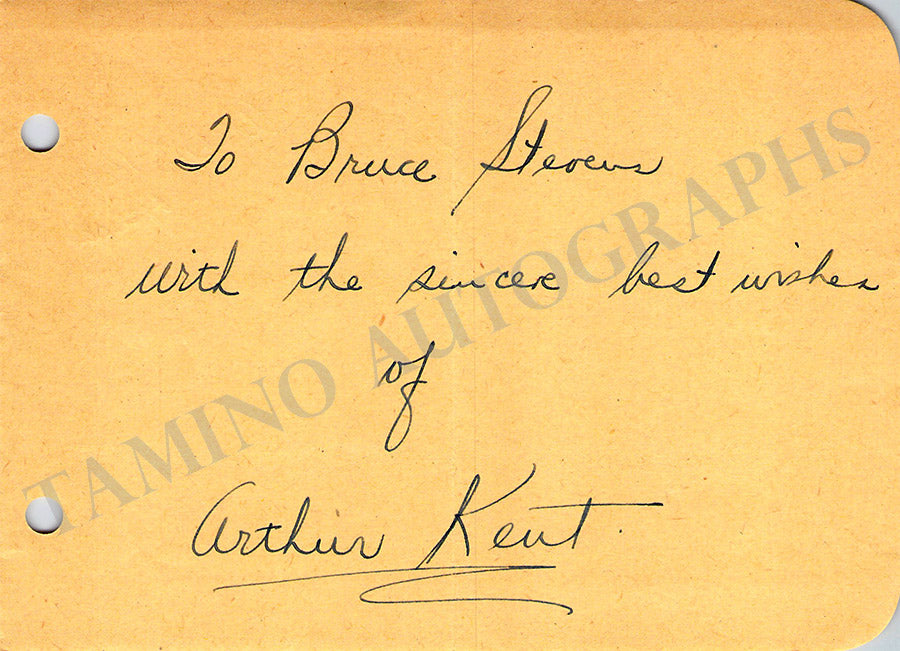 To Bruce Stevens
with the sincere best wishes
of
Arthur Kent.
TAMINO AUTOGRAPHS